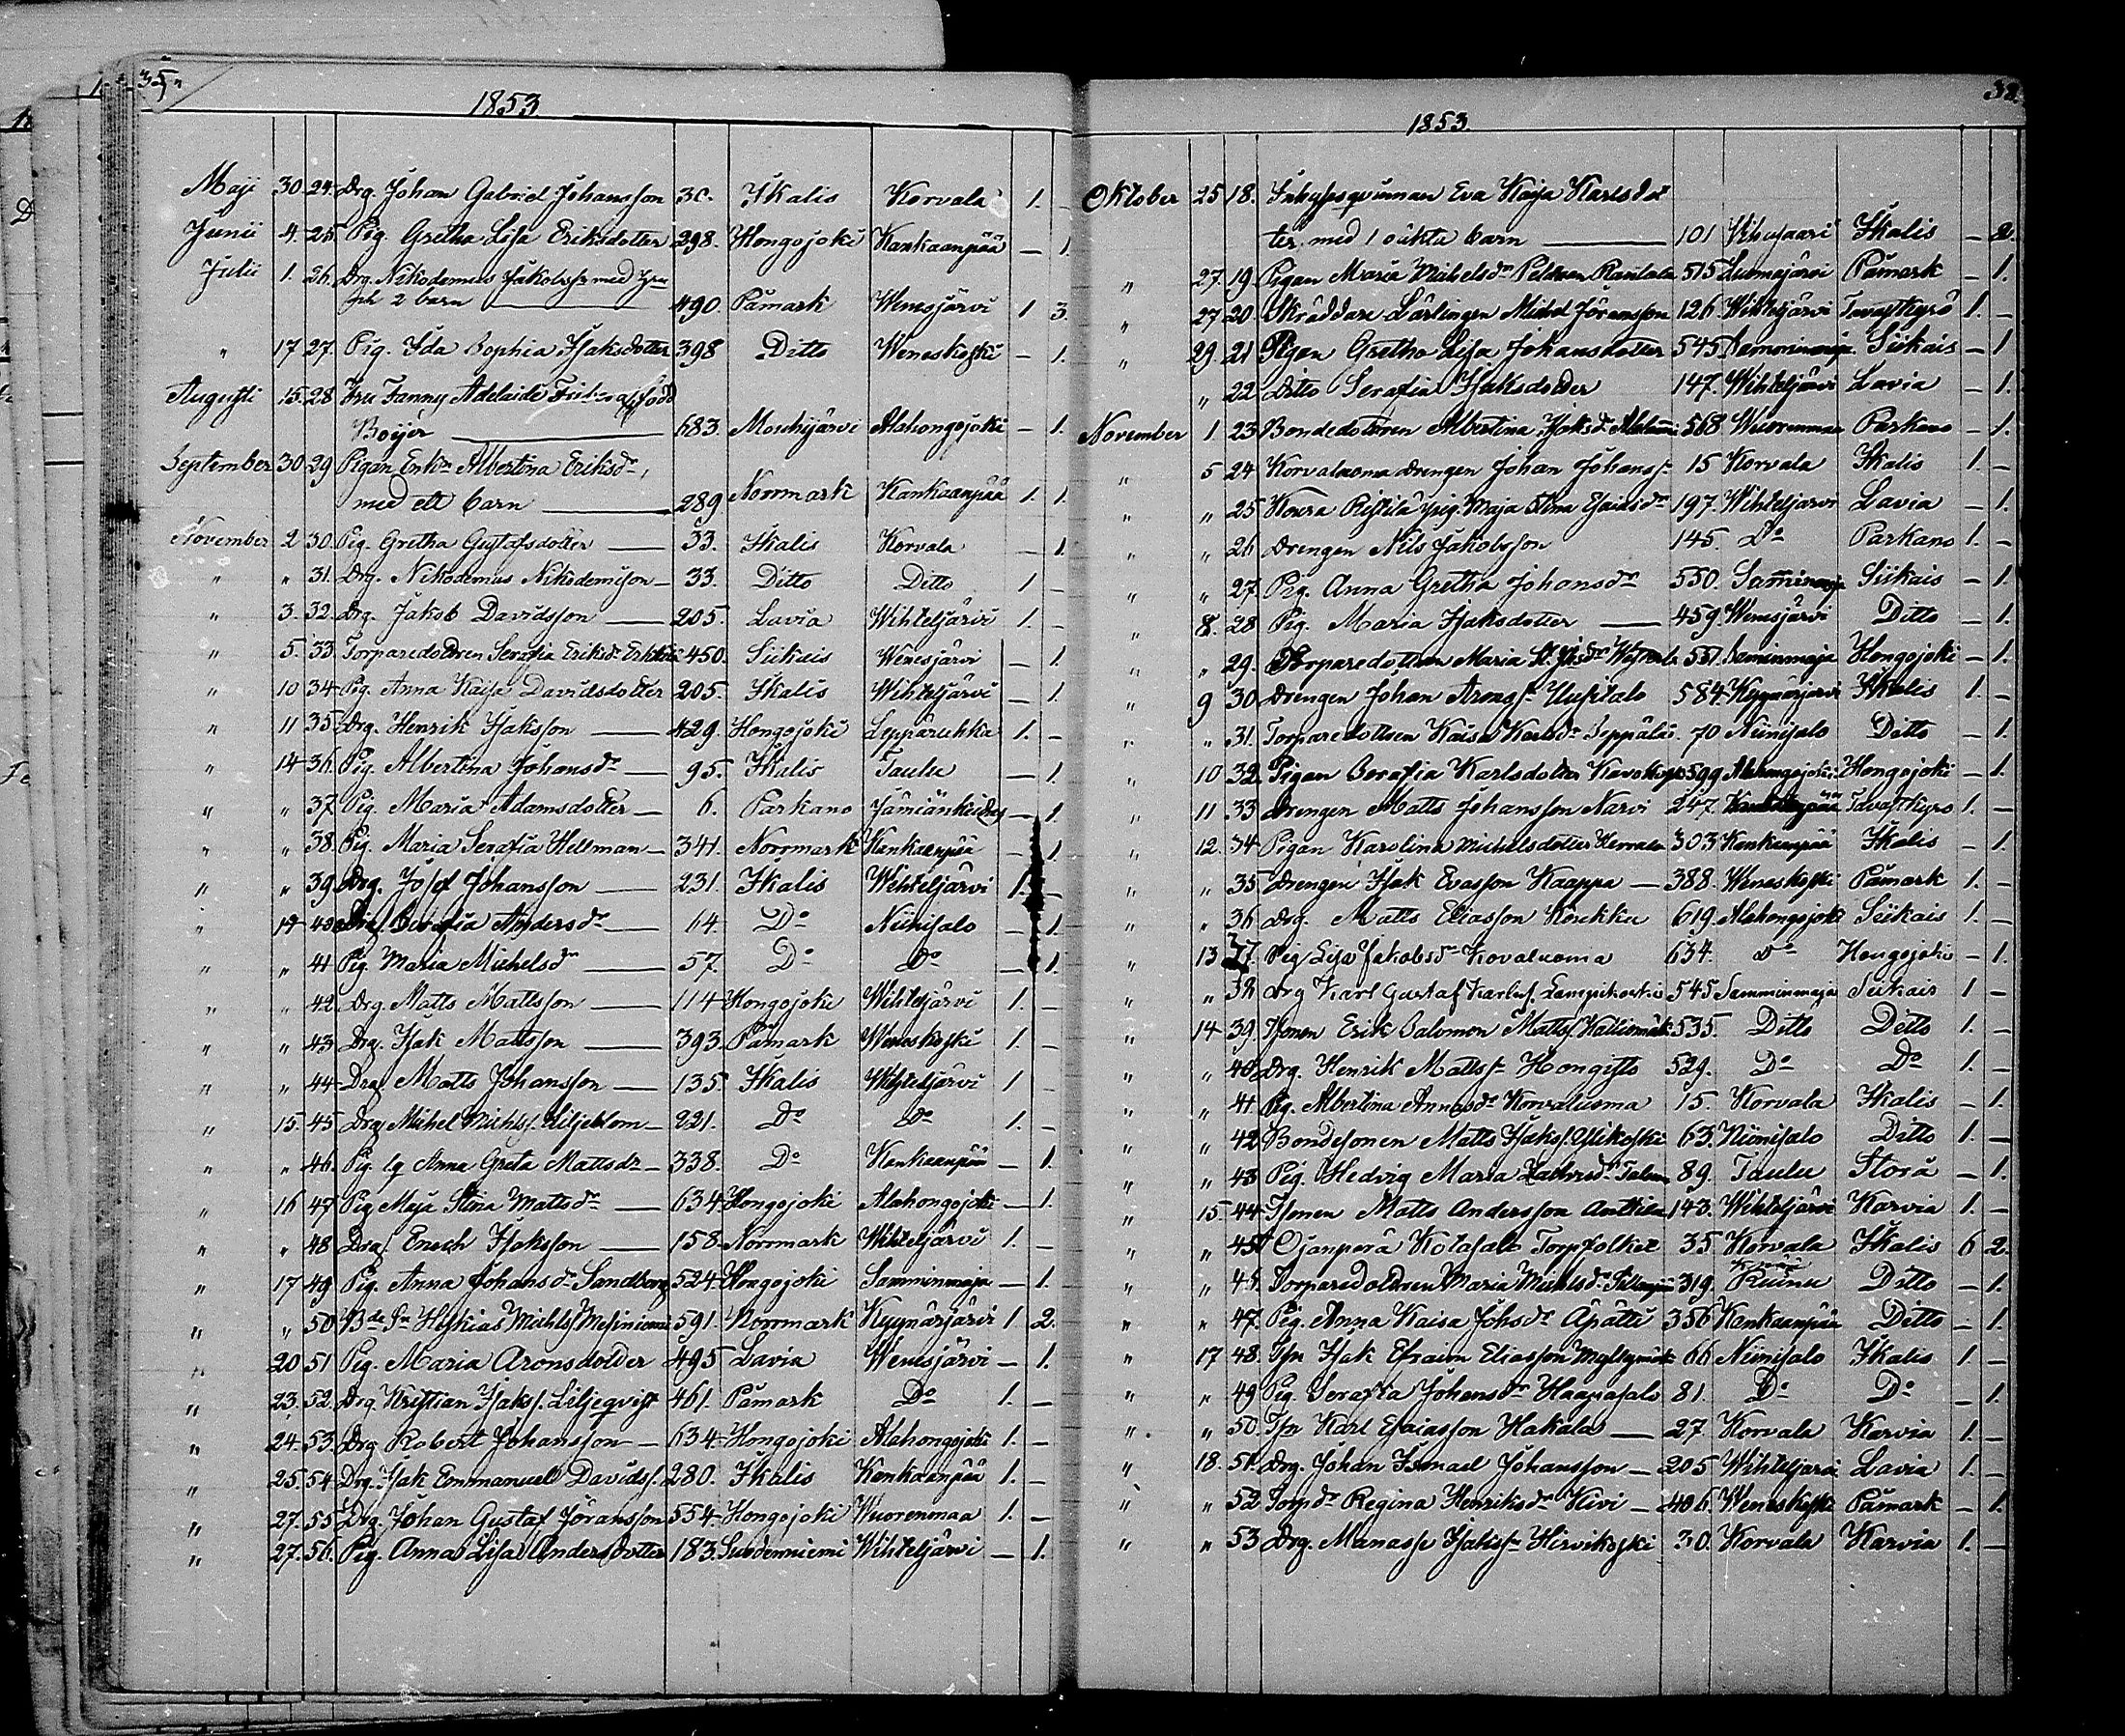 35
1853
Maji 30 24. Drg. Johan Gabriel Johansson 30. Ikalis Korvala 1. –
Junii 4. 25 Pig. Gretha Lisa Eriksdotter 298. Hongojoki Kankaanpää – 1.
Julii 1. 26. Drg. Nikodemus Jakobss: med
2 barn 490. Påmark Wenesjärvi 1 3.
" 17 27. Pig. Ida Sophia Isaksdotter 398 Ditto Weneskoski – 1.
Augusti 15. 28 Fru Fanny Adelaide Friberg född
Boijer 683. Mouhijärvi Alahongojoki – 1.
September 30 29 Pigan Enk: Albertina Eriksdr,
med ett barn 289 Norrmark Kankaanpää 1. 1.
November 2 30. Pig. Gretha Gustafsdotter 33. Ikalis Korvala – 1.
" " 31. Drg. Nikodemus Nikodemison 33. Ditto Ditto 1 –
" 3. 32. Drg. Jakob Davidsson 205. Lavia Wihteljärvi 1. –
" 5. 33. Torparedottren Serafia Eriksdr 450. Siikais Wenesjärvi – 1.
" 10 34 Pig. Anna Kaisa Davidsdotter 205. Ikalis Wihteljärvi – 1.
" 11 35. Drg. Henrik Isaksson 429. Hongojoki Leppäruhka 1. –
" 14 36. Pig. Albertina Johansdr 95. Ikalis Taulu – 1.
" " 37. Pig. Maria Adamsdotter 6. Parkano – 1.
" " 38. Pig. Maria Serafia Hellman 341. Norrmark Kankaanpää – 1
" " 39. Drg. Josef Johansson 231. Ikalis Wihteljärvi 1. –
" 14 40 Pig. Serafia Andersdr 64. Do Niinisalo – 1.
" " 41 Pig. Maria Michelsdr 57. Do Do – 1.
" " 42 Drg. Matts Mattsson 114 Hongojoki Wihteljärvi 1. –
" " 43 Drg. Isak Mattsson 393. Påmark Weneskoski 1. –
" " 44 Drg. Matts Johansson 135 Ikalis Wihteljärvi 1 –
" 15. 45 Drg. Mikel Michlss. Liljeblom 221. Do Do 1. –
" " 46. Pig. Anna Greta Mattsdr 338. Do Kankaanpää – 1.
" 16 47 Pig Maja Stina Mattsdr 634 Hongojoki Alahongojoki – 1.
" " 48 Drg. Enoch Isaksson 158. Norrmark Wihteljärvi 1. –
" 17 49 Pig. Anna Johansdr Sandberg 524 Hongojoki Samminmaja – 1.
" " 50 Hiskias Michlss 591. Norrmark Kyynärjärvi 1 2.
" 20 51 Pig. Maria Aronsdotter 495 Lavia Wenesjärvi – 1.
" 23. 52. Drg. Kristian Isakss. Liljeqvist 461. Påmark Do 1. –
" 24. 53. Drg Robert Johansson 634 Hongojoki Alahongojoki 1. –
" 25. 54 Drg. Isak Emmanuel Davidss. 280. Ikalis Kankaanpää 1. –
" 27. 55 Drg. Johan Gustaf Göransson 554 Hongojoki Wuorenmaa 1. –
" 27. 56. Pig. Anna Lisa Andersdotter 183. Suodenniemi Wihteljärvi – 1.
1853
Oktober 25 18. Inhysesqvinnan Eva Kaija Karlsdot
ter, med 1 oäkta barn 101 Vihusaari Ikalis – 2.
" 27. 19. Pigan Maria Michelsdr 515 Luomajärvi Påmark – 1.
" 27 20. Skräddare Lärlingen Michel Göransson 126. Wihteljärvi Tavastkyrö 1. –
" 29. 21 Pigan Gretha Lisa Johansdotter 545. Samminmaja Siikais – 1
" " 22 Ditto Serafia Isaksdotter 147. Wihteljärvi Lavia – 1.
November 1. 23 Bondedottren Albertina Isaksdr 568 Wuorenmaa Parkano – 1.
" 5 24 Korvaluoma drengen Johan Johanss: 15 Korvala Ikalis 1. –
" " 25 Ristilä pig. Maja Stina Esaiasdr 197. Wihteljärvi Lavia – 1.
" " 26 Drengen Nils Jakobsson 145. Do Parkano 1. –
" " 27 Pig. Anna Gretha Johansdr 550. Samminmaja Siikais – 1.
" 8. 28 Pig. Maria Isaksdotter 459. Wenesjärvi Ditto – 1.
" " 29. Torparedottren Maria 551. Samminmaja Hongojoki – 1.
" 9 30 Drengen Johan Aronss: Uusitalo 584. Kyynärjärvi Ikalis 1. –
" " 31. Torparedottren Kaisa Seppälä 70 Niinisalo Ditto – 1.
" 10 32 Pigan Serafia Karlsdotter 599 Alahongojoki Hongojoki – 1.
" 11 33 Drengen Matts Johansson Narvi 247. Kankaanpää Tavastkyro 1. –
" 12. 34 Pigan Karolina Michelsdotter 303 Kankaanpää Ikalis – 1.
" " 35 Drengen Isak Evasson Kaappa 388. Weneskoski Påmark 1. –
" " 36 Drg. Matts Eliasson Koukku 619. Alahongojoki Siikais 1. –
" 13 37. Pig Lisa Jakobsdr Kovaluoma 634. Do Hongojoki – 1.
" " 38 Drg Karl Gustaf Karlss. Lampikoski 545 Samminmaja Siikais 1 –
" 14 39. Erik Salomon Mattss. 535. Ditto Ditto 1. –
" " 40. Drg. Henrik Mattss: Hongisto 529. Do Do 1. –
" " 41. Pig. Albertina Annasdr Korvaluoma 15. Korvala Ikalis – 1.
" " 42 Bondesonen Matts Isakss. Ylikoski 63. Niinisalo Ditto 1. –
" " 43 Pig. Hedvig Maria 89. Taulu Storå – 1.
" 15. 44 Matts Andersson Anttila 143. Wihteljärvi Karvia 1. –
" " 45 Ojanperä Kotasalo Torpfolket 35 Korvala Ikalis 6 2.
" " 45. Torparedottren Maria Michlsdr 319. Ruinu Ditto – 1.
" " 47. Pig. Anna Kaisa Johsdr Apätti 356 Kankaanpää Ditto – 1.
" 17 48. Isak Efraim Eliasson 66 Niinisalo Ikalis 1. –
" " 49 Pig. Serafia Johansdr Haapasalo 81. Do Do – 1.
" " 50. Karl Esaiasson Hakala 27 Korvala Karvia 1. –
" 18. 51. Drg. Johan Ismael Johansson 205 Wihteljärvi Lavia 1. –
" " 52 Torpdr Regina Henriksdr Kivi 406. Weneskoski Påmark – 1.
" " 53 Drg. Manasse Isakss: Hirvikoski 30. Korvala Karvia 1. –